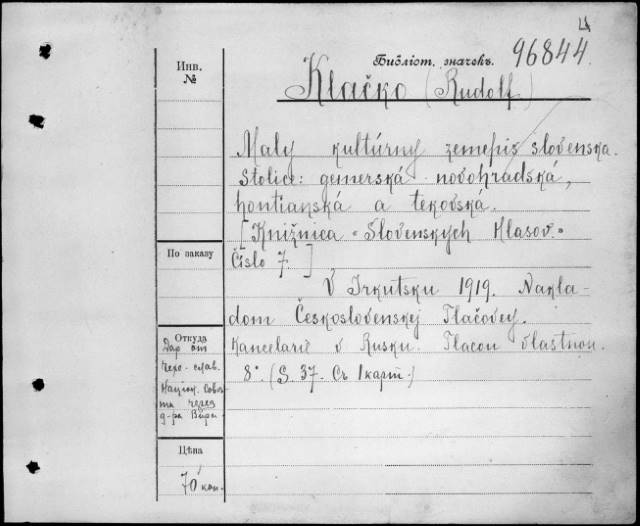 Ц
Библіот. значекъ. 96844.
Инв.
№
Klačko (Rudolf)
Malý kultúrny zemepis slovenska.
Stolice: gemerská novohradská,
hontianská a tekovská.
[Knižnica "Slovenských Hlasov."
Číslo 7.]
V Irkutsku 1919. Nakla-
dom Československej Tlačovej.
Kancelarie v Rusku. Tlačou vlastnou.
8°. (S. 37. Съ 1 карт.)
По заказу
Откуда
Дар от
чехо-слав.
Націон. Сове-
та через
д-ра
Цѣна
70 коп.